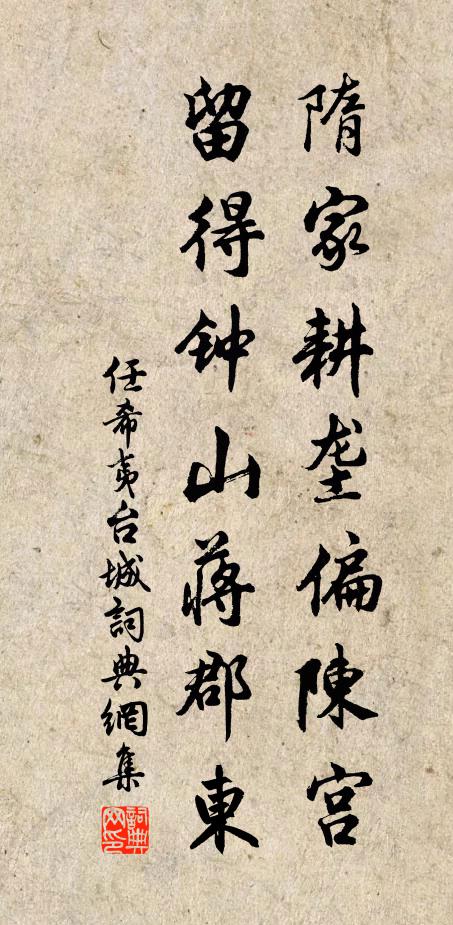 隋家耕垄偏陳宫
留得钟山蔣郡東
任希夷台城詞典網集
詞典
网印